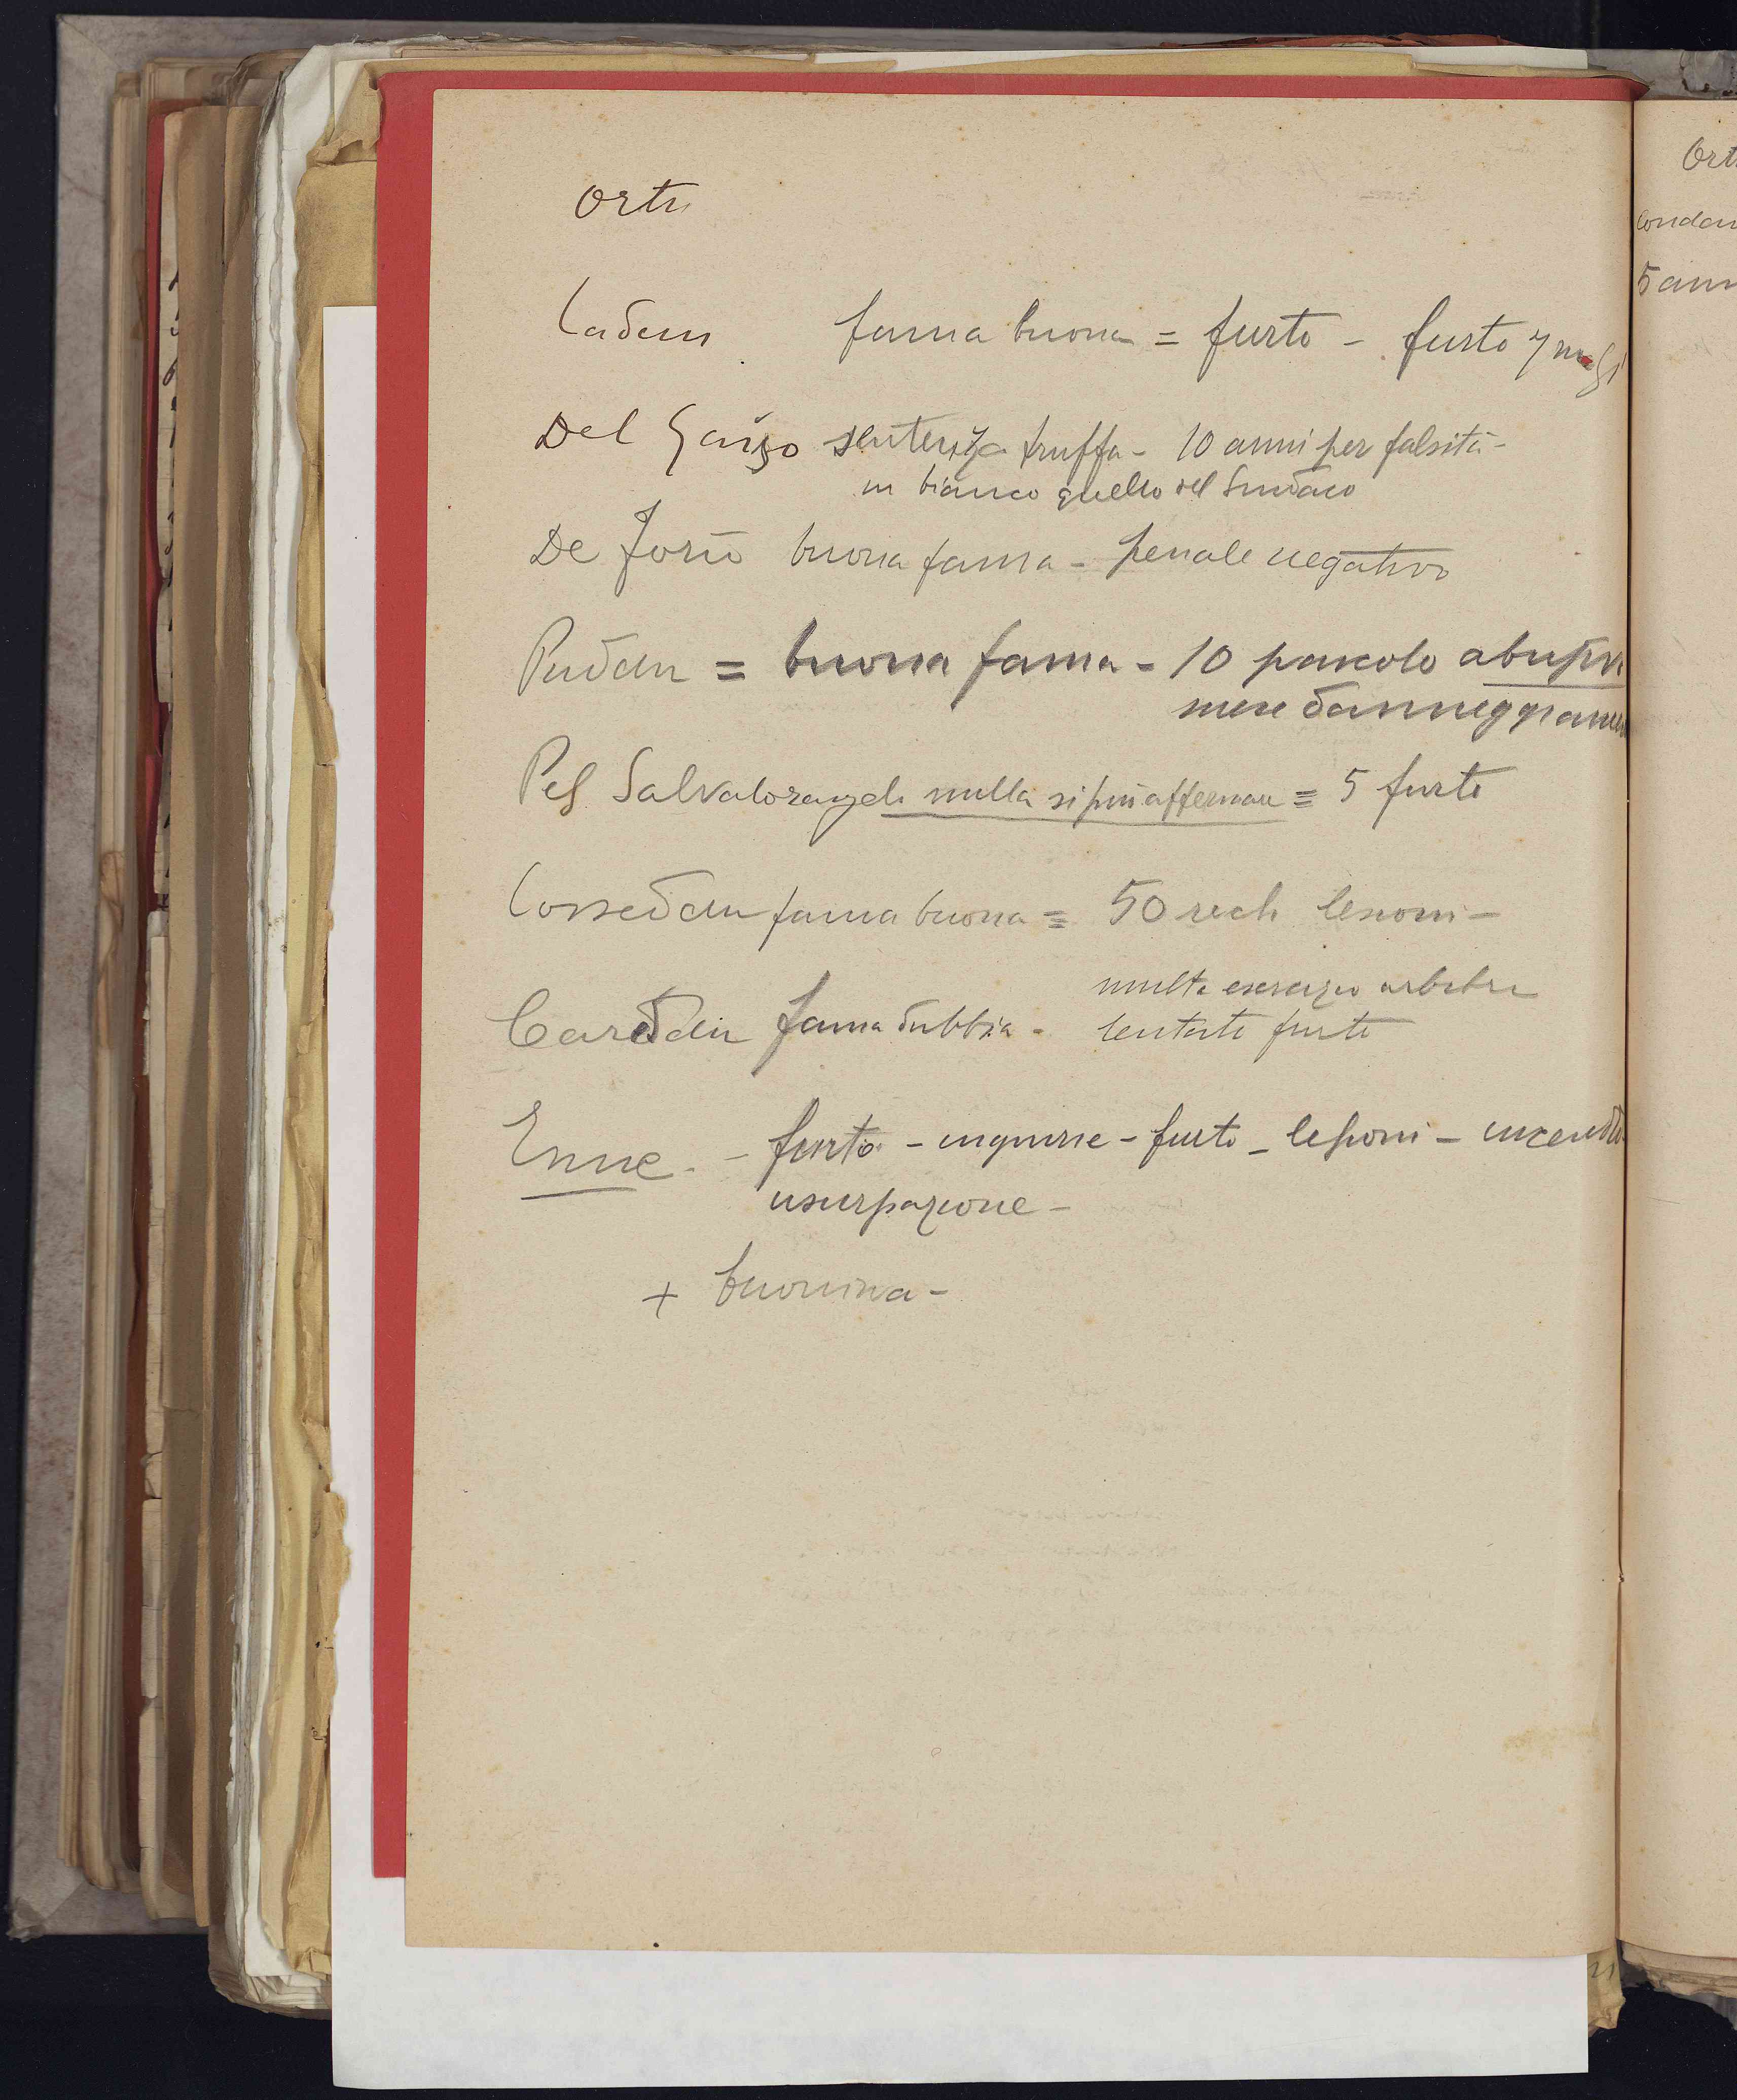 Ortu
Cadeu fama buona = furto - furto 7 mesi
Del Gaizo sentenza truffa - 10 anni per falsità -
in bianco quello del Sindaco
De Jorio buona fama - penale negativo
Puddu = buona fama - 10 pascolo abusivo
mese danneggiamen
Pes Salvatorangelo nulla si può affermare = 5 furto
Cosseddu fama buona = 50 recl. lesioni -
multa esercizio arbitri
Careddu fama dubbia - tentato furto
Enne. - furto - ingiurie - furto - lesioni - incendio
usurpazione -
+ buonina -
Ort
condan
5 ann